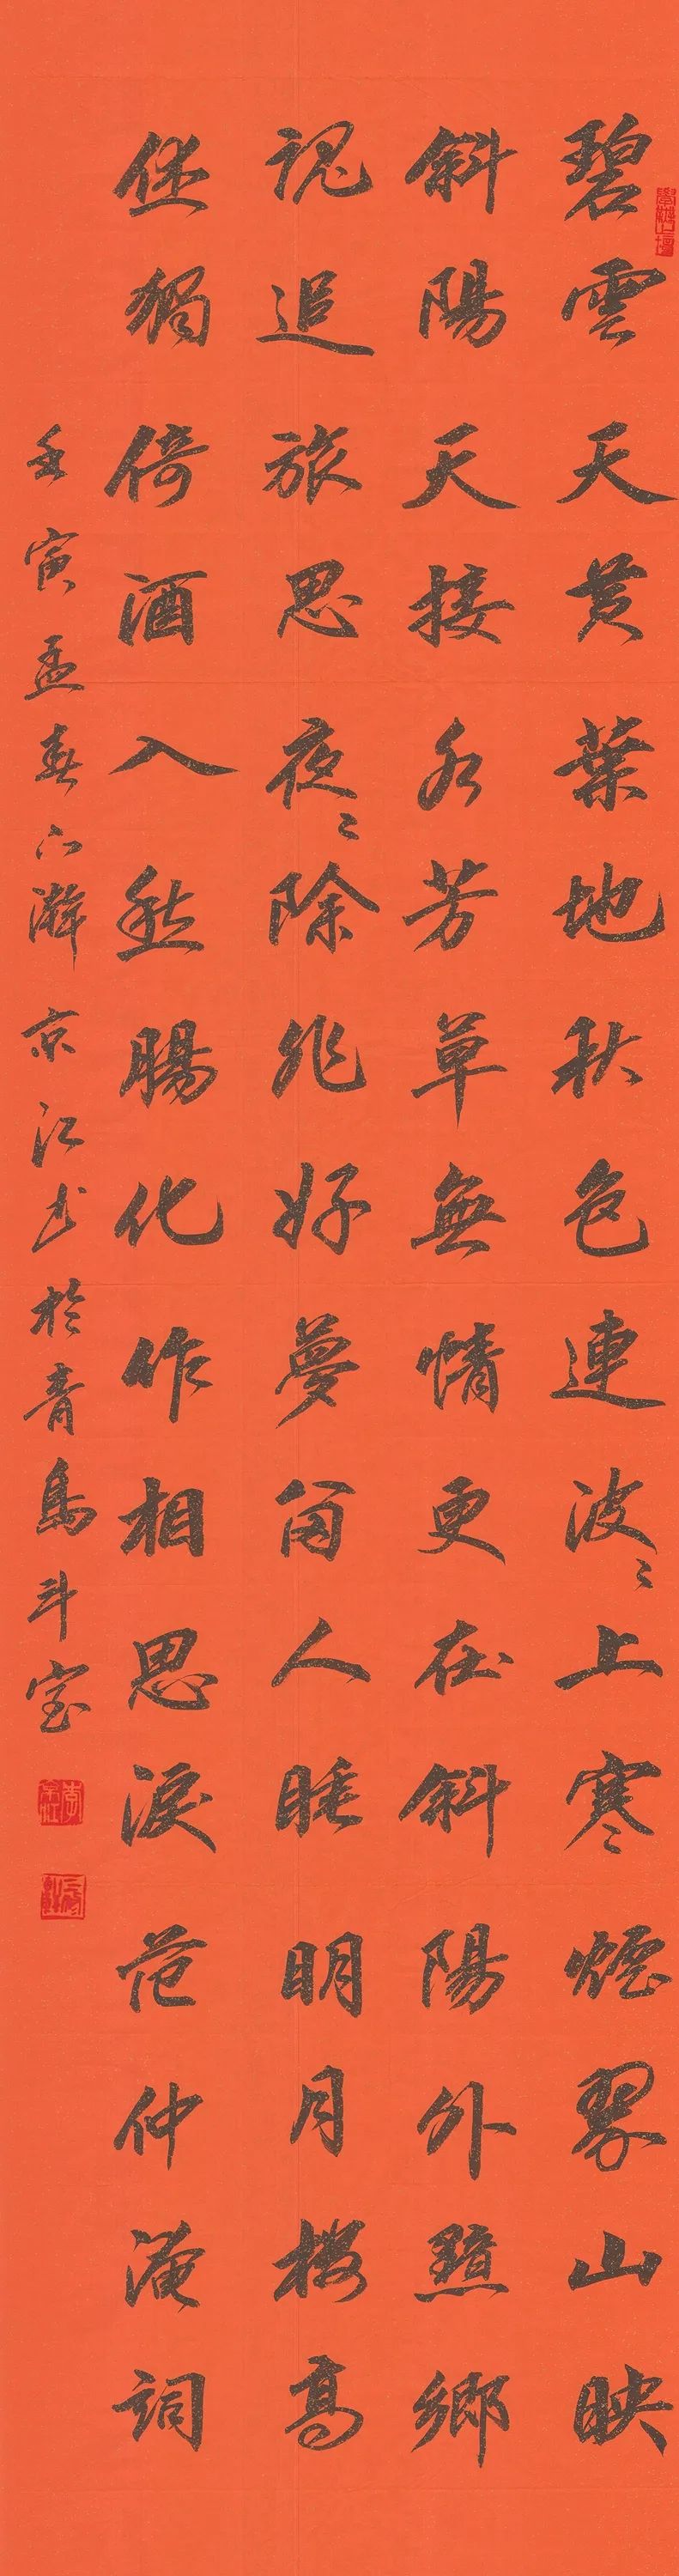 碧雲天黄葉地秋色連波〻上寒煙翠山映
斜陽天接水芳草無情更在斜陽外黯鄉
魂追旅思夜〻除非好夢留人睡明月樓高
休獨倚酒入愁腸化作相思淚范仲淹詞
壬寅孟春京江书於青鳥斗室